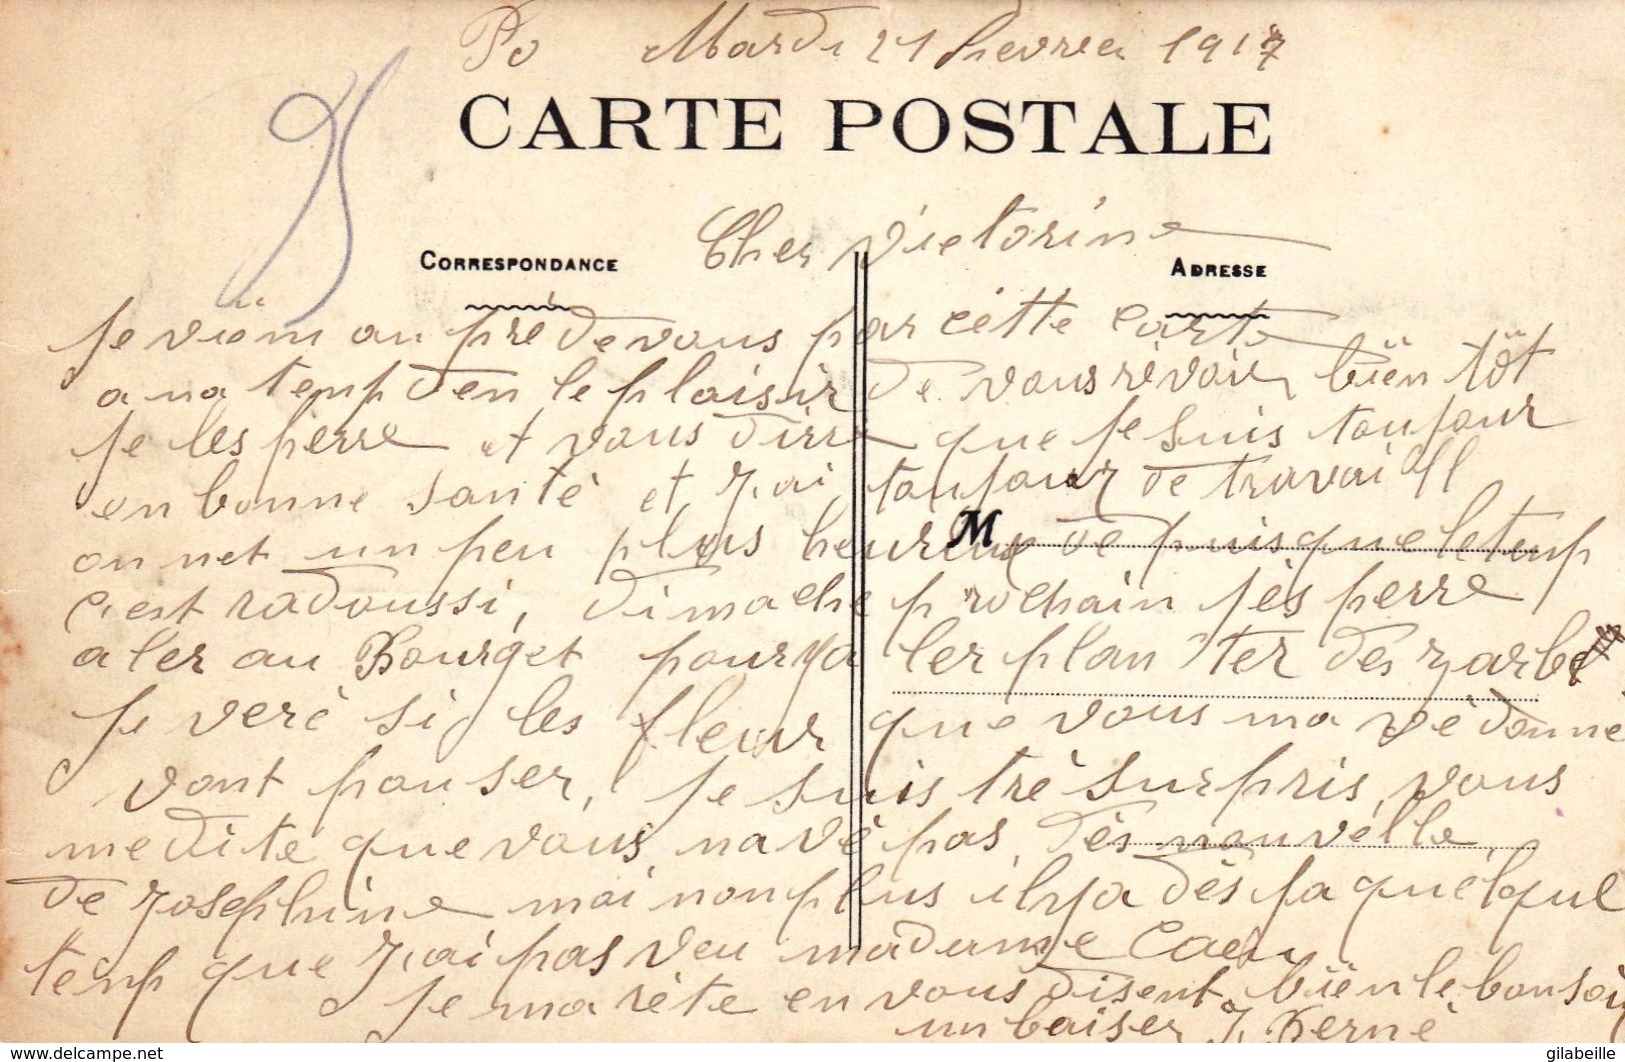 Po Mardi 21 fievrier 1917
CARTE POSTALE
Cher Victorine
CORRESPONDANCE
ADRESSE
je viem au pré de vous par cètte carte
a na temp den le plaisir de vous rèvoir biën tôt
je les pierre et vous dirre que je suis toujour
en bonne santè et j.ai toujour de travaill
on net un peu plus heureux de puisque le temp
c'est radoussi, dimache prochain jès perre
aler au Bourget pour ya ler plan ter des zarbe
M
je verè si les fleur que vous ma vè donne
vont pouser, je suis trè surpris, vous
me dite que vous na vè pas dès nouvèlle
de Josephine moi non plus il ya dès ja quèlque
temp que j.ai pas veu madame Caen
je ma rète en vous disent biën le bonsoir
un baiser J.
gilabeille